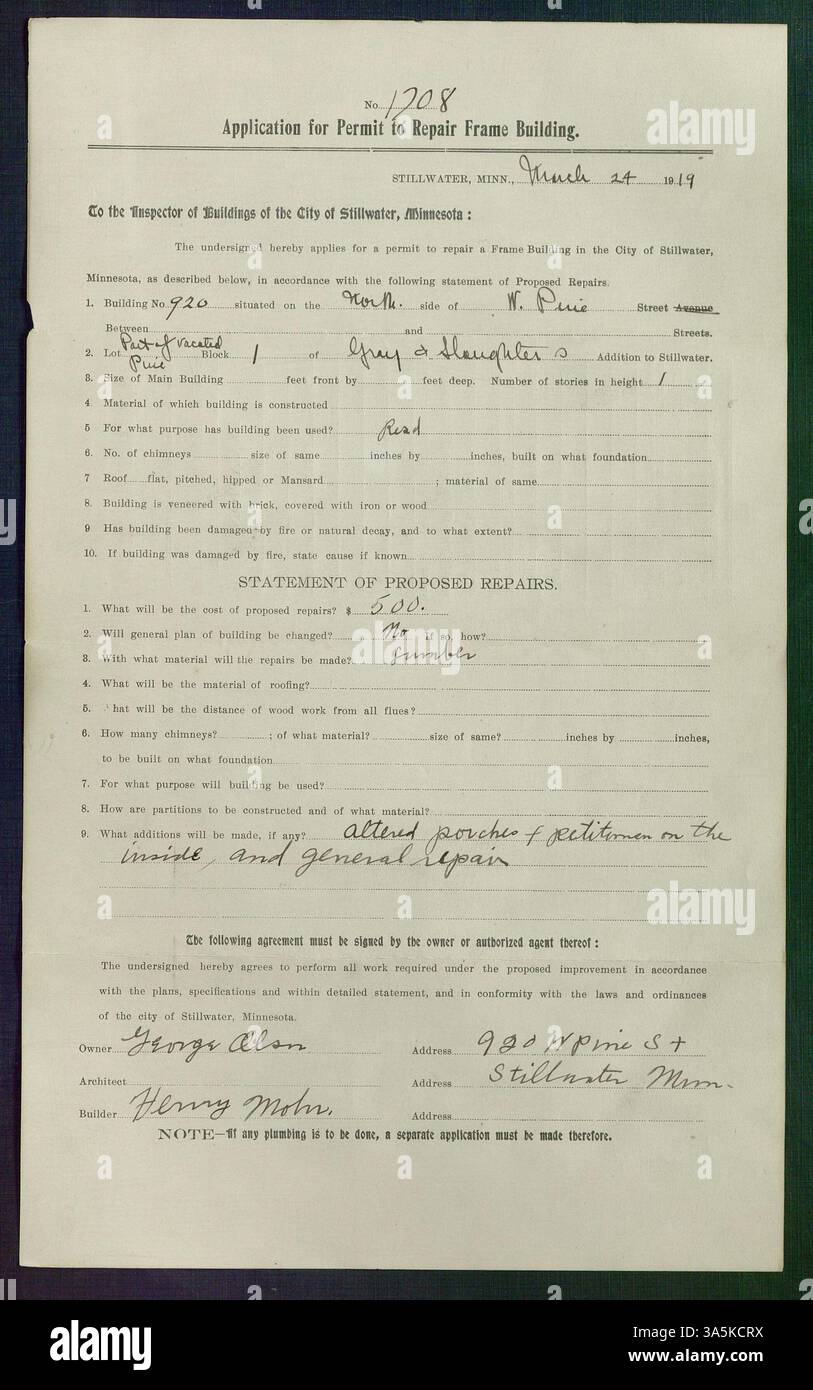 No. 1708
Application for Permit to Repair Frame Building.
STILLWATER, MINN., March 24 1919
To the Inspector of Buildings of the City of Stillwater, Minnesota :
The undersigned hereby applies for a permit to repair a Frame Building in the City of Stillwater,
Minnesota, as described below, in accordance with the following statement of Proposed Repairs.
1. Building No. 920 situated on the North. side of W. Pine Street Avenue
Between and Streets.
2. Lot Part of vacated Pine Block 1 of Gray & Slaughters Addition to Stillwater.
3. Size of Main Building feet front by feet deep. Number of stories in height 1
4. Material of which building is constructed
5 For what purpose has building been used? Resd
6. No. of chimneys size of same inches by inches, built on what foundation
7 Roof flat, pitched, hipped or Mansard ; material of same
8. Building is veneered with brick, covered with iron or wood
9 Has building been damaged by fire or natural decay, and to what extent?
10. If building was damaged by fire, state cause if known
STATEMENT OF PROPOSED REPAIRS.
1. What will be the cost of proposed repairs? $ 500.
2. Will general plan of building be changed? No if so, how?
3. With what material will the repairs be made? Lumber
4. What will be the material of roofing?
5. hat will be the distance of wood work from all flues?
6. How many chimneys? ; of what material? size of same? inches by inches,
to be built on what foundation
7. For what purpose will building be used?
8. How are partitions to be constructed and of what material?
9. What additions will be made, if any? altered porches & petitimen on the
inside, and general repair
The following agreement must be signed by the owner or authorized agent thereof :
The undersigned hereby agrees to perform all work required under the proposed improvement in accordance
with the plans, specifications and within detailed statement, and in conformity with the laws and ordinances
of the city of Stillwater, Minnesota.
Owner George Olson Address 920 W Pine St
Architect Address Stillwater Minn.
Builder Henry Mohr. Address
NOTE—If any plumbing is to be done, a separate application must be made therefore.
alamy
Image ID: 3A5KCRX
www.alamy.com